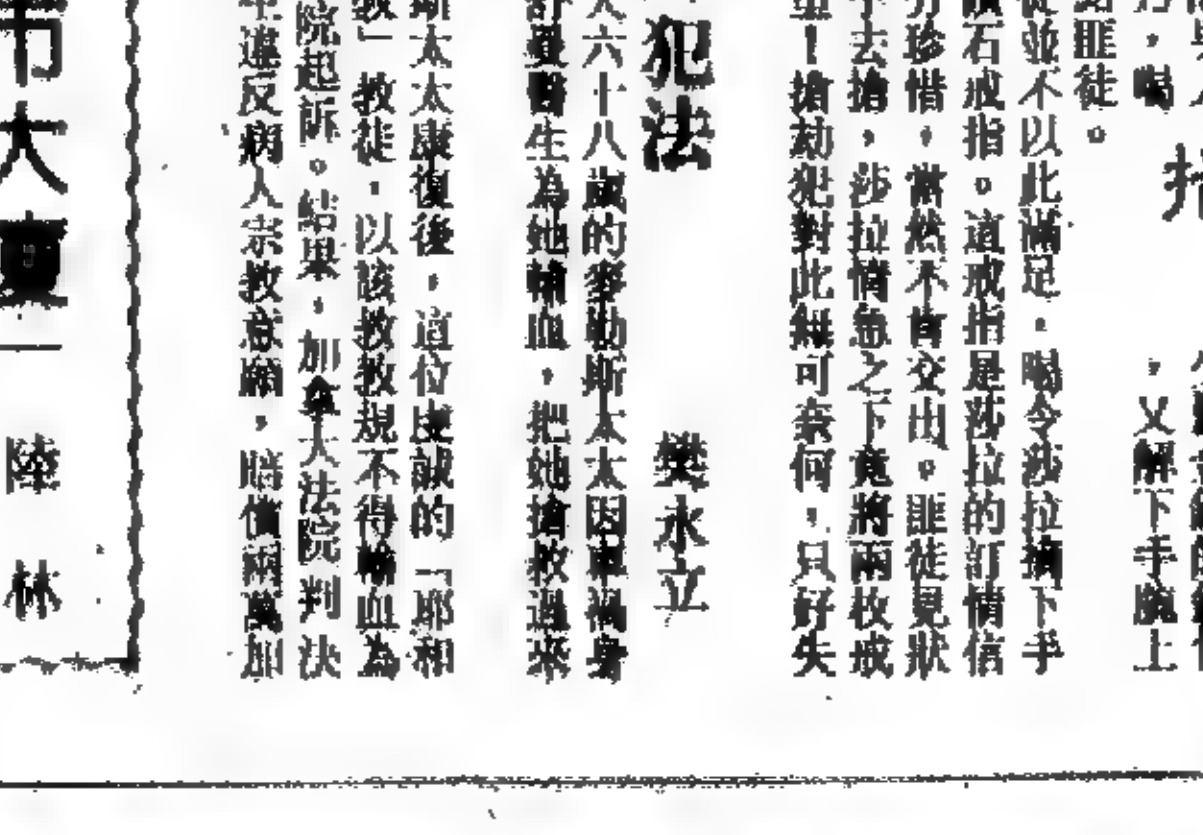 ，喝
，又解下手腕上
匪徒。
從並不以此滿足，喝令莎拉摘下手
石戒指。這戒指是莎拉的訂情信
珍惜，當然不肯交出。匪徒見狀
去搶，莎拉情急之下竟將兩枚戒
！搶劫犯對此無可奈何，只好失
犯法
樊永立
六十八歲的麥勒斯太太因車禍身
醫生為她輸血，把她搶救過來
斯太太康復後，這位虔誠的「耶和
教」教徒，以該教教規不得輸血為
院起訴。結果，加拿大法院判決
違反病人宗教意願，賠償兩萬加
大夏一
陸
林